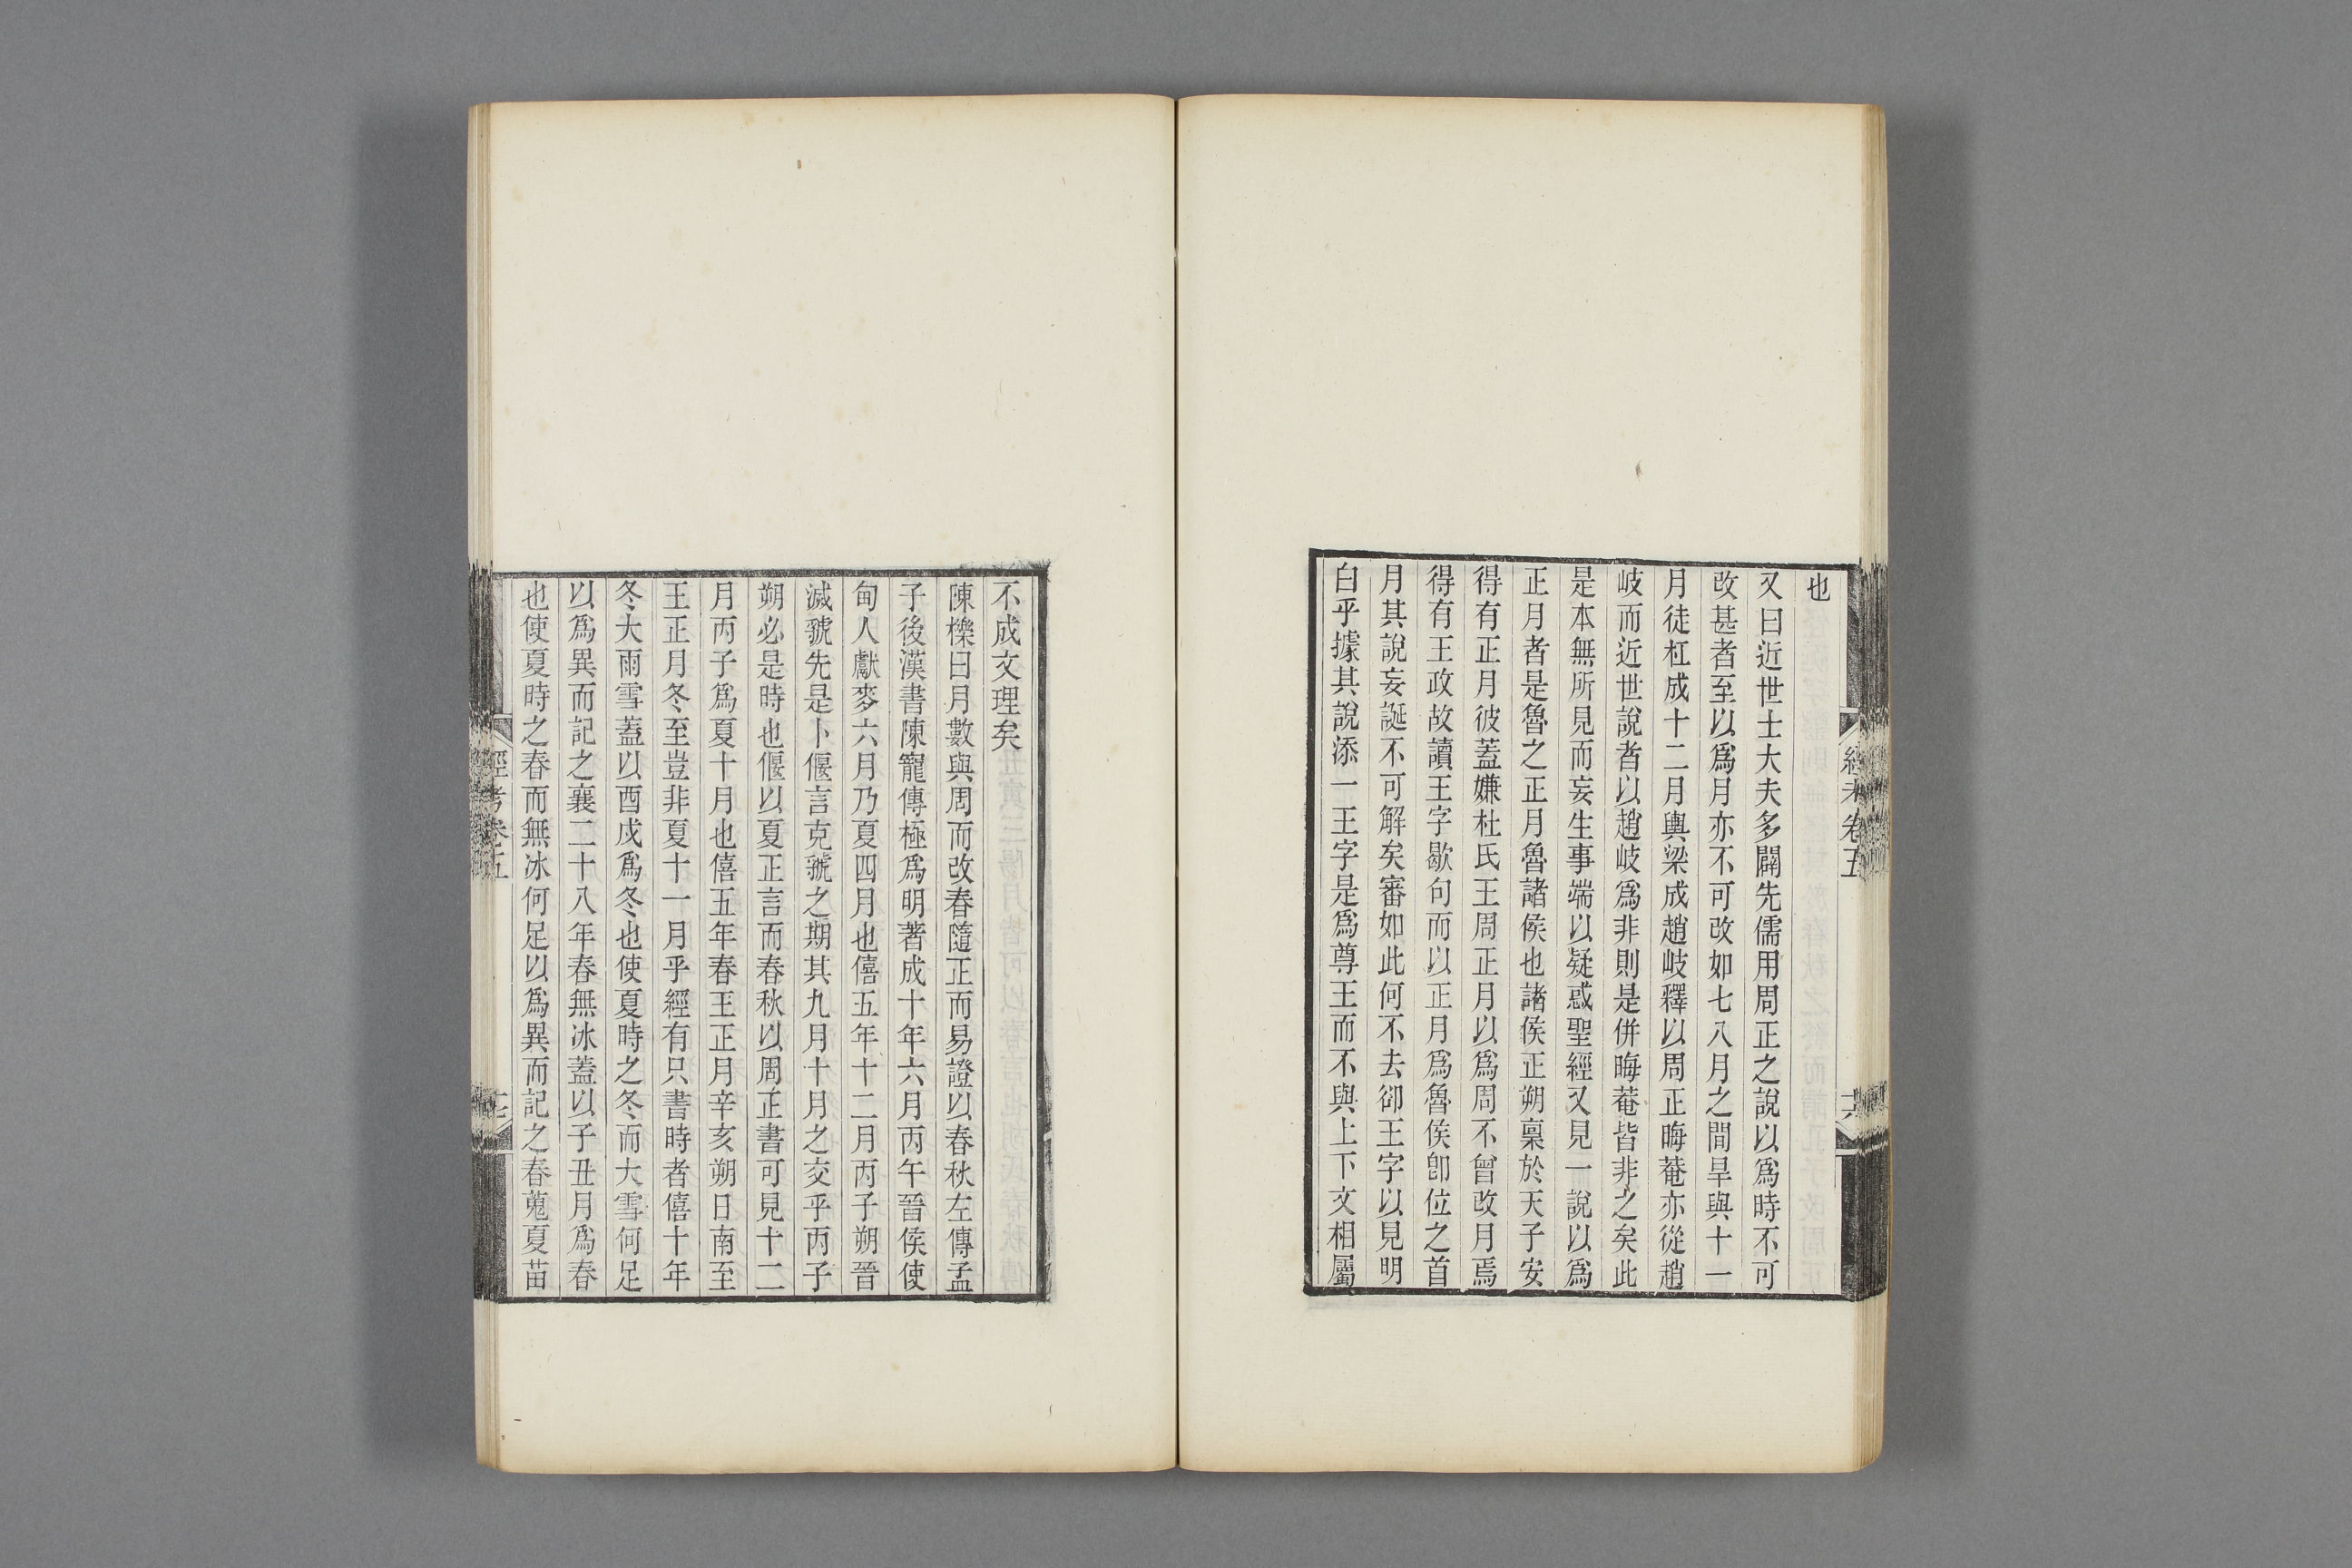 也
又曰近世士大夫多闢先儒用周正之說以爲時不可
改甚者至以爲月亦不可改如七八月之間旱與十一
月徒杠成十二月輿梁成趙岐釋以周正晦菴亦從趙
岐而近世說者以趙岐爲非則是併晦菴皆非之矣此
是本無所見而妄生事端以疑惑聖經又見一說以爲
正月者是魯之正月魯諸侯也諸侯正朔稟於天子安
得有正月彼蓋嫌杜氏王周正月以爲周不曾改月焉
得有王政故讀王字歇句而以正月爲魯侯卽位之首
月其說妄誕不可解矣審如此何不去卻王字以見明
白乎據其說添一王字是爲尊王而不與上下文相屬
經考卷五
十六
不成文理矣
陳櫟曰月數與周而改春隨正而易證以春秋左傳孟
子後漢書陳寵傳極爲明著成十年六月丙午晉侯使
甸人獻麥六月乃夏四月也僖五年十二月丙子朔晉
滅虢先是卜偃言克虢之期其九月十月之交乎丙子
朔必是時也偃以夏正言而春秋以周正書可見十二
月丙子爲夏十月也僖五年春王正月辛亥朔日南至
王正月冬至豈非夏十一月乎經有只書時者僖十年
冬大雨雪蓋以酉戌爲冬也使夏時之冬而大雪何足
以爲異而記之襄二十八年春無冰蓋以子丑月爲春
也使夏時之春而無冰何足以爲異而記之春蒐夏苗
經考卷五
十七